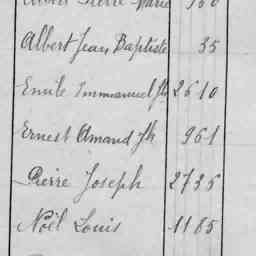 Pierre Marie
Albert Jean Baptiste 35
Emile Emmanuel fls 2610
Ernest Amand fls 961
Pierre Joseph 2735
Noël Louis 1185